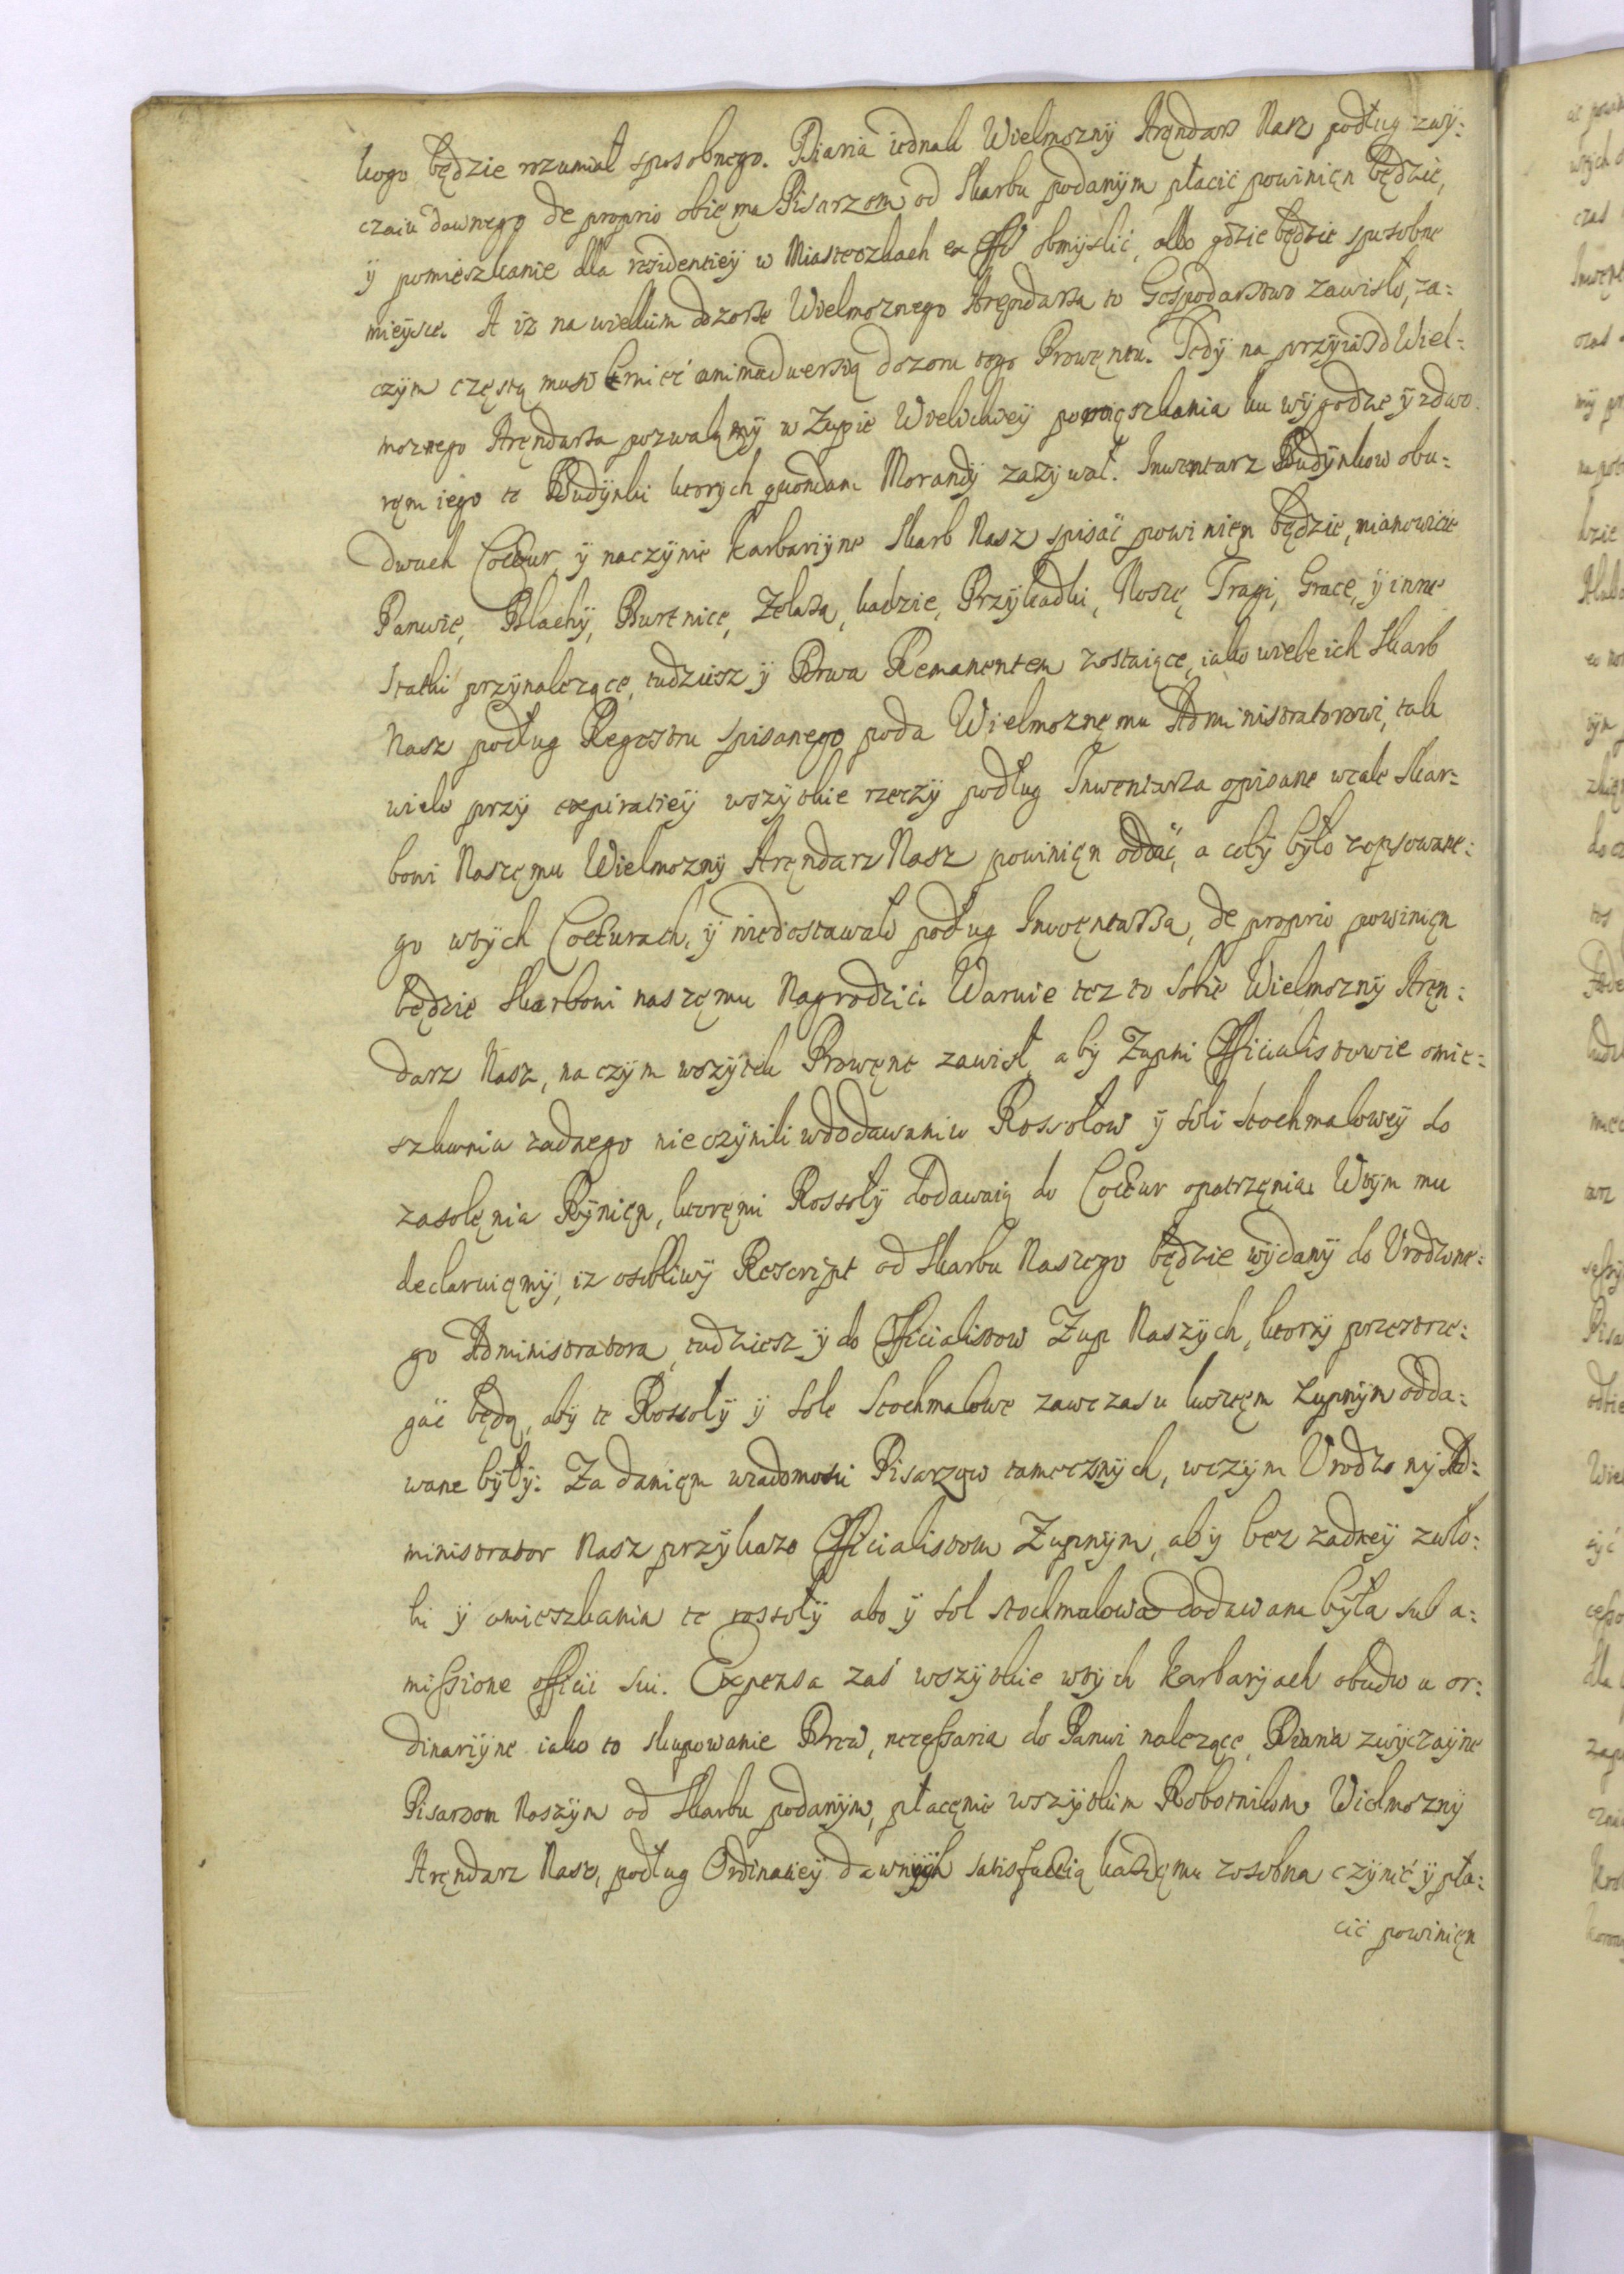 kogo będzie rozumiał sposobnego. Diaria iednak Wielmozny Aręndarz Nasz podług zwy:
czaiu dawnego de proprio obięma Pisarzom od Skarbu podanym płacić powinięn będzie,
y pomieszkanie dla residentiey w Miasteczkach ex Offo obmyslić, albo gdzie będzie sposobne
mieysce. A iż na wielkim dozorze Wielmoznego Aręndarza to Gospodarstwo zawisło, za:
czym częstą musi mieć animadwersią dozoru tego Prowęntu. Tedy na przyiazd Wiel:
moznego Aręndarza pozwalamy w Zupie Wielickiey pomięszkania ku wygodzie y zdwo
ręm iego te Budynki ktorych quondam Morandy zazywał. Inwentarz Budynkow obu:
dwuch Coctur y naczynie karbaryine Skarb Nasz spisać powinięn będzie, mianowicie
Panwie, Blachy, Burtnice, Zelaza, kadzie, Przykadki, Noszę, Tragi, Grace, y inne
statki przynalezące, tudziesz y Drwa Remanentem zostaiące, iako wiele ich Skarb
Nasz podług Regestru spisanego poda Wielmoznęmu Administratorowi, tak
wiele przy expiratiey wszytkie rzeczy podług Inwentarza opisane wcale Skar:
bowi Naszęmu Wielmozny Aręndarz Nasz powinięn oddać, a coby było zepsowane:
go wtych Cocturach, y niedostawało podług Inwęntarza, de proprio powinięn
będzie Skarbowi naszęmu Nagrodzić. Waruie tez to sobie Wielmozny Aręn:
darz Nasz, na czym wszytek Prowęnt zawisł, aby Zupni Officialistowie omie:
szkania zadnego nieczynili wdodawaniu Rossołow y soli stochmalowey do
zasolęnia Rynięn, ktoręmi Rossoły dodawaią do Coctur opatrzęnia. Wtym mu
declaruięmy, iz osobliwy Rescript od Skarbu Naszego będzie wydany do Vrodzone:
go Administratora, tudziesz y do Officialistow Zup Naszych, ktorzy przestrze:
gać będą, aby te Rossoły y sole stochmalowe zawczasu kosztęm Zupnym odda:
wane były: Za danięm wiadomości Pisarzow tamecznych, wczym Vrodzony Ad:
ministrator Nasz przykaze Officialistom Zupnym, aby bez zadney zwło:
ki y omieszkania te rossoły abo y sol stochmalowa dodawana była sub a:
missione officii sui. Expensa zaś wszytkie wtych karbaryach obudwu or:
dinaryine iako to skupowanie Drew, necessaria do Panwi nalezące, Diaria zwyczayne
Pisarzom Naszym od Skarbu podanym, płacęnie wszytkim Robotnikom Wielmozny
Aręndarz Nasz, podług Ordinatiey dawnych satisfactią kazdęmu zosobna czynić y pła:
cić powinięn